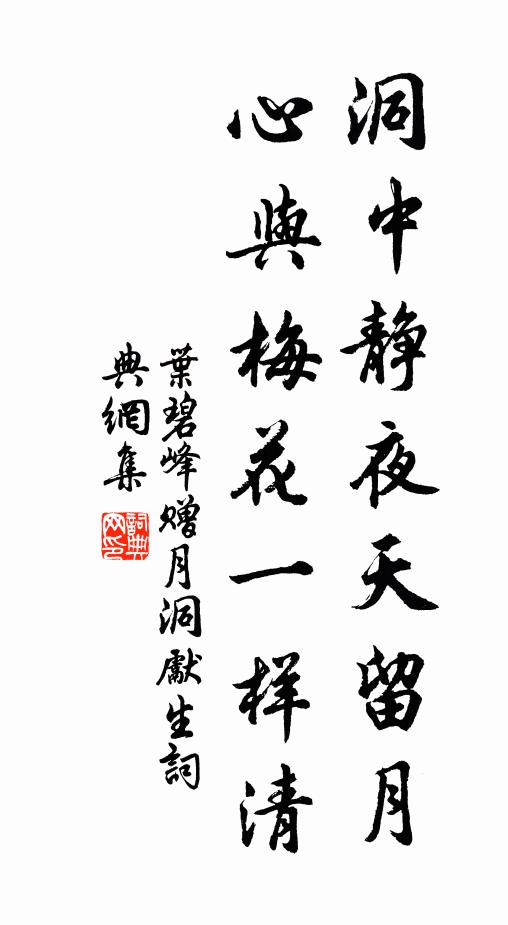 洞中静夜天留月
心與梅花一样清
葉碧峰赠月洞獻生詞
典網集
詞典网印